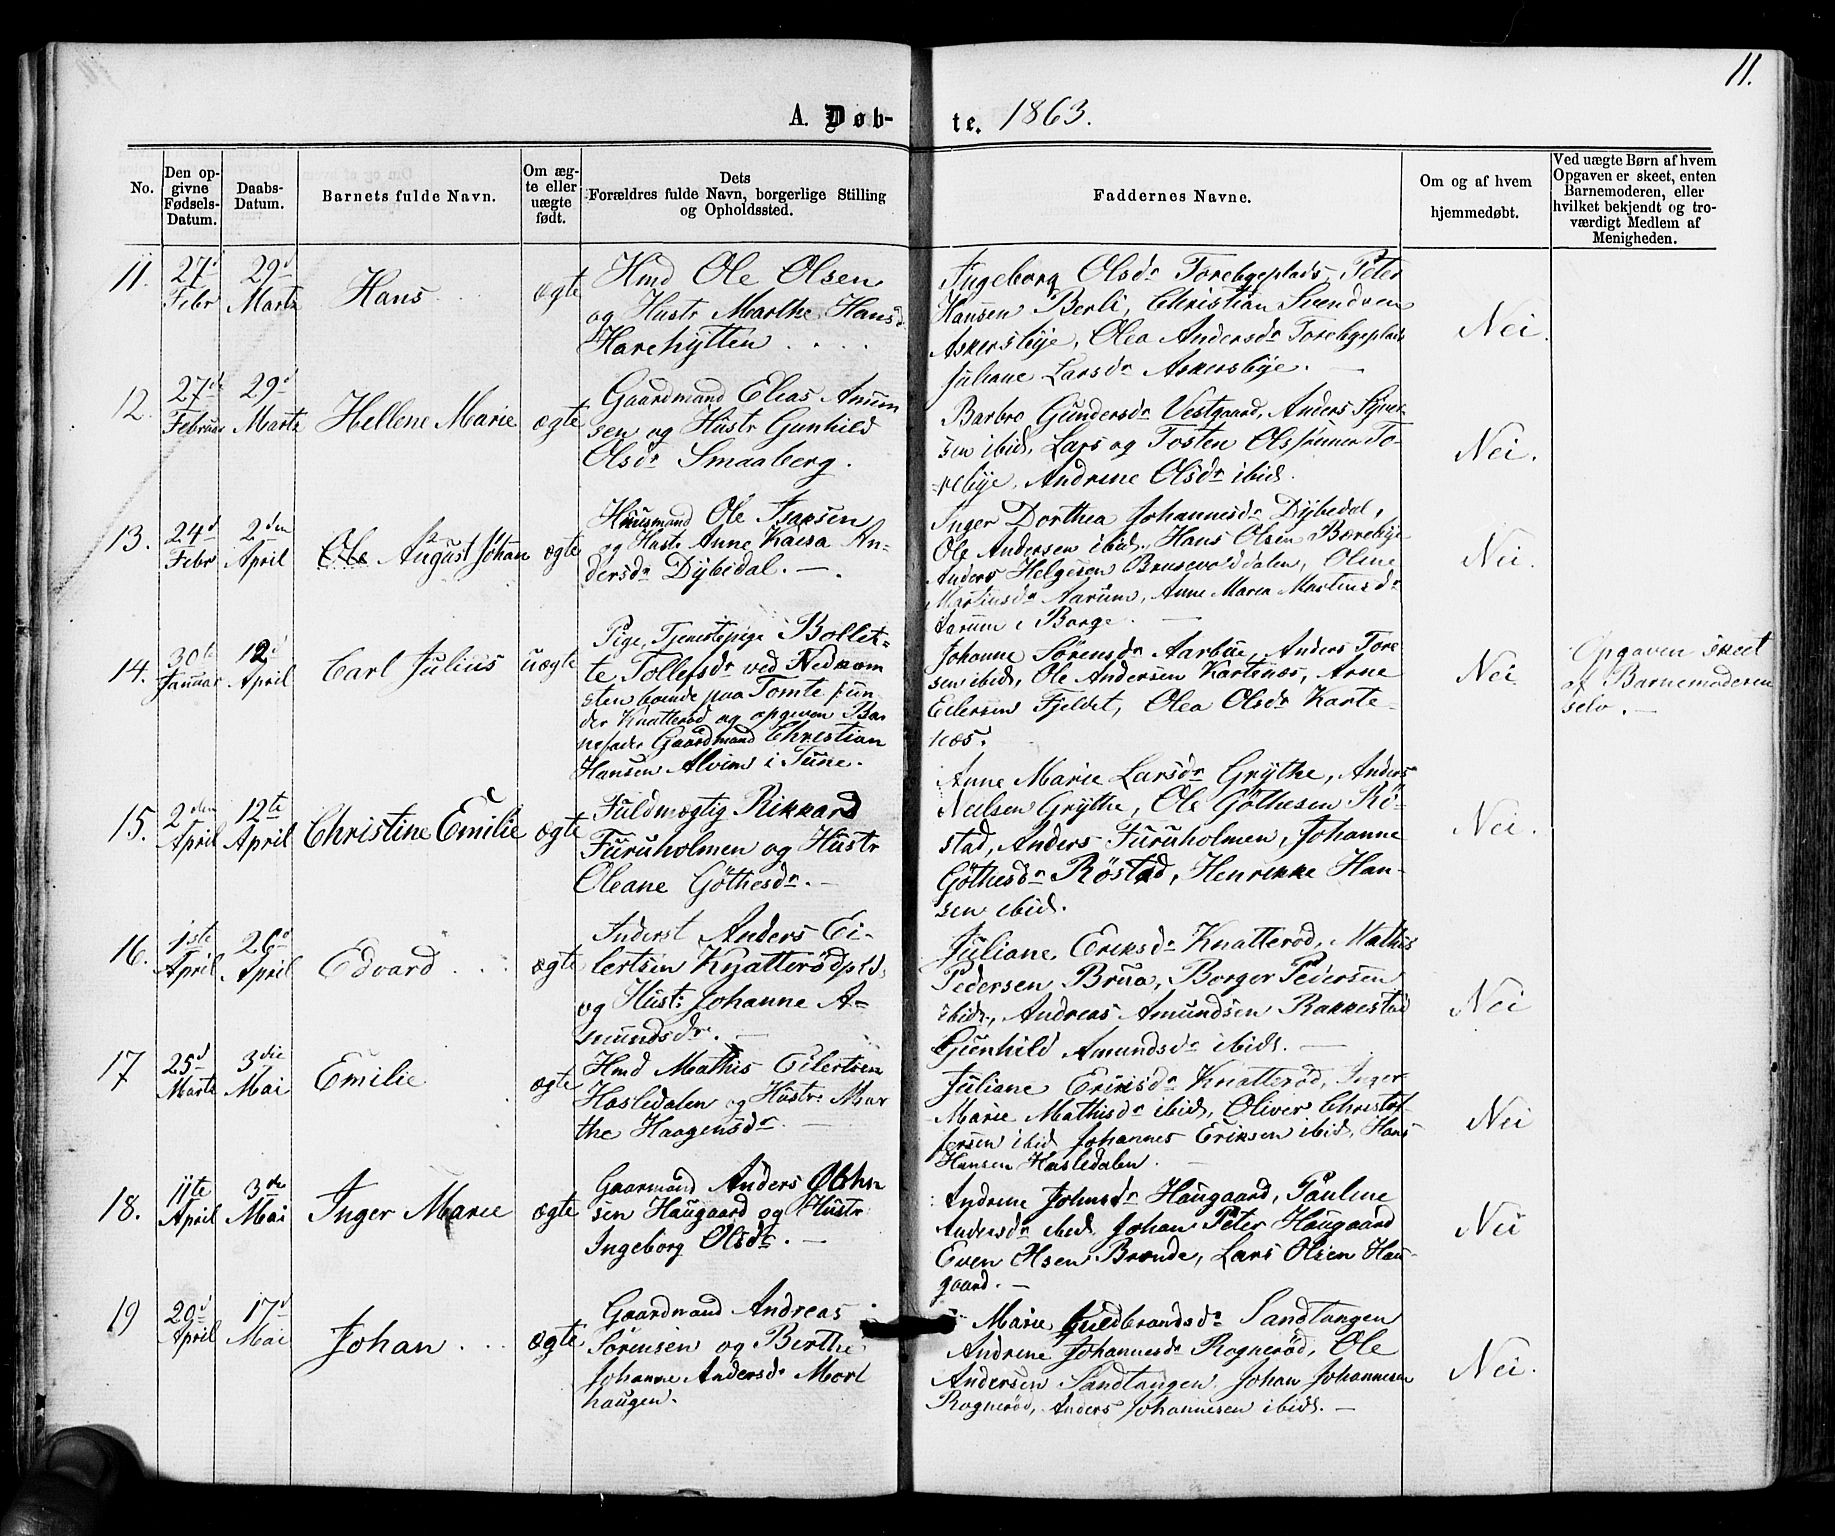 11.
A. Døb-
te. 1863.
No.
Den op-
givne
Fødsels-
Datum.
Daabs-
Datum.
Barnets fulde Navn.
Om æg-
te eller
uægte
født.
Dets
Forældres fulde Navn, borgerlige Stilling
og Opholdssted.
Faddernes Navne.
Om og af hvem
hjemmedøbt.
Ved uægte Børn af hvem
Opgaven er skeet, enten
Barnemoderen, eller
hvilket bekjendt og tro-
værdigt Medlem af
Menigheden.
11.
27d
Febr
29d
Marts
Hans
ægte
Hmd Ole Olsen
og Hustr Marthe Hansd
Harehytten
Ingeborg Olsdr Torebyeplads, Peter
Hansen Berli, Christian Svendsen
Askersbye, Olea Andersdr Torebyeplads
Juliane Larsdr Askersbye.
Nei.
12.
27d
Februar
29d
Marts
Hellene Marie
ægte
Gaardmand Elias Amun
sen og Hustr Gunhild
Olsdr Smaaberg.
Barbro Gundersdr Vestgaard, Anders Syver-
sen ibid, Lars og Tosten Olssønner To-
rebye, Andrine Olsdr ibid.
Nei.
13.
24d
Febr
2den
April
Ole August Johan
ægte
Huusmand Ole Isaksen
og Hustr Anne Kaisa An-
dersdr Dybedal.
Inger Dorthea Johannesdr Dybedal,
Ole Andersen ibid, Hans Olsen Borebye
Anders Helgesen Brusevolddalen, Oline
Martinsdr Aarum, Anne Maren Martinsdr
Aarum i Borge.
Nei.
14.
30te
Januar
12d
April
Carl Julius
uægte
Pige, Tjenestepige Bollet-
te Tollefsdr ved Nedkom
sten boende paa Tomte un-
der Knatterød og opgiven Bar
nefader Gaardmand Christian
Hansen Alvim i Tune.
Johanne Sørensdr Aarbue, Anders Tore
sen ibid, Ole Andersen Kartenæs, Arne
Eilersen Fjeldet, Olea Olsdr Karte-
næs.
Nei
Opgaven skeet
af Barnemoderen
selv.
15.
2den
April
12te
April
Christine Emilie
ægte
Fuldmægtig Rikkard
Furuholmen og Hustr
Oleane Göthesdr.
Anne Marie Larsdr Grythe, Anders
Neilsen Grythe, Ole Göthesen Rö-
stad, Anders Furuholmen, Johanne
Göthesdr Röstad, Henrikke Han-
sen ibid.
Nei.
16.
1ste
April
26d
April
Edvard
ægte
Inderst Anders Ei-
lertsen Knatterödpld.
og Hust: Johanne A-
mundsdr.
Juliane Eriksdr Knatterød, Mathis
Pedersen Brua, Borger Pedersen
ibid, Andreas Amundsen Rakkestad
Gunhild Amundsdr ibid.
Nei
17
25d
Marts
3die
Mai
Emilie
ægte
Hmd Mathis Eilertsen
Hasledalen og Hustr Mar
the Haagensdr.
Juliane Eriksdr Knatterød, Inger
Marie Mathisdr ibid, Oliver Christof
fersen ibid Johannes Eriksen ibid, Hans
Hansen Hasledalen
Nei
18.
11te
April
3die
Mai
Inger Marie
ægte
Gaarmand Anders John
sen Haugaard og Hustr
Ingeborg Olsdr.
Andrine Johnsdr Haugaard, Pauline
Andersdr ibid, Johan Peter Haugaard
Even Olsen Brønde, Lars Olsen Hau-
gaard.
Nei
19
20d
April
17d
Mai
Johan
ægte
Gaardmand Andreas
Sørensen og Berthe
Johanne Andersdr Mørl
haugen.
Marie Guldbrandsdr Sandtangen
Andrine Johannesdr Rognerød, Ole
Andersen Sandtangen, Johan Johannesen
Rognerød, Anders Johannesen ibid.
Nei.